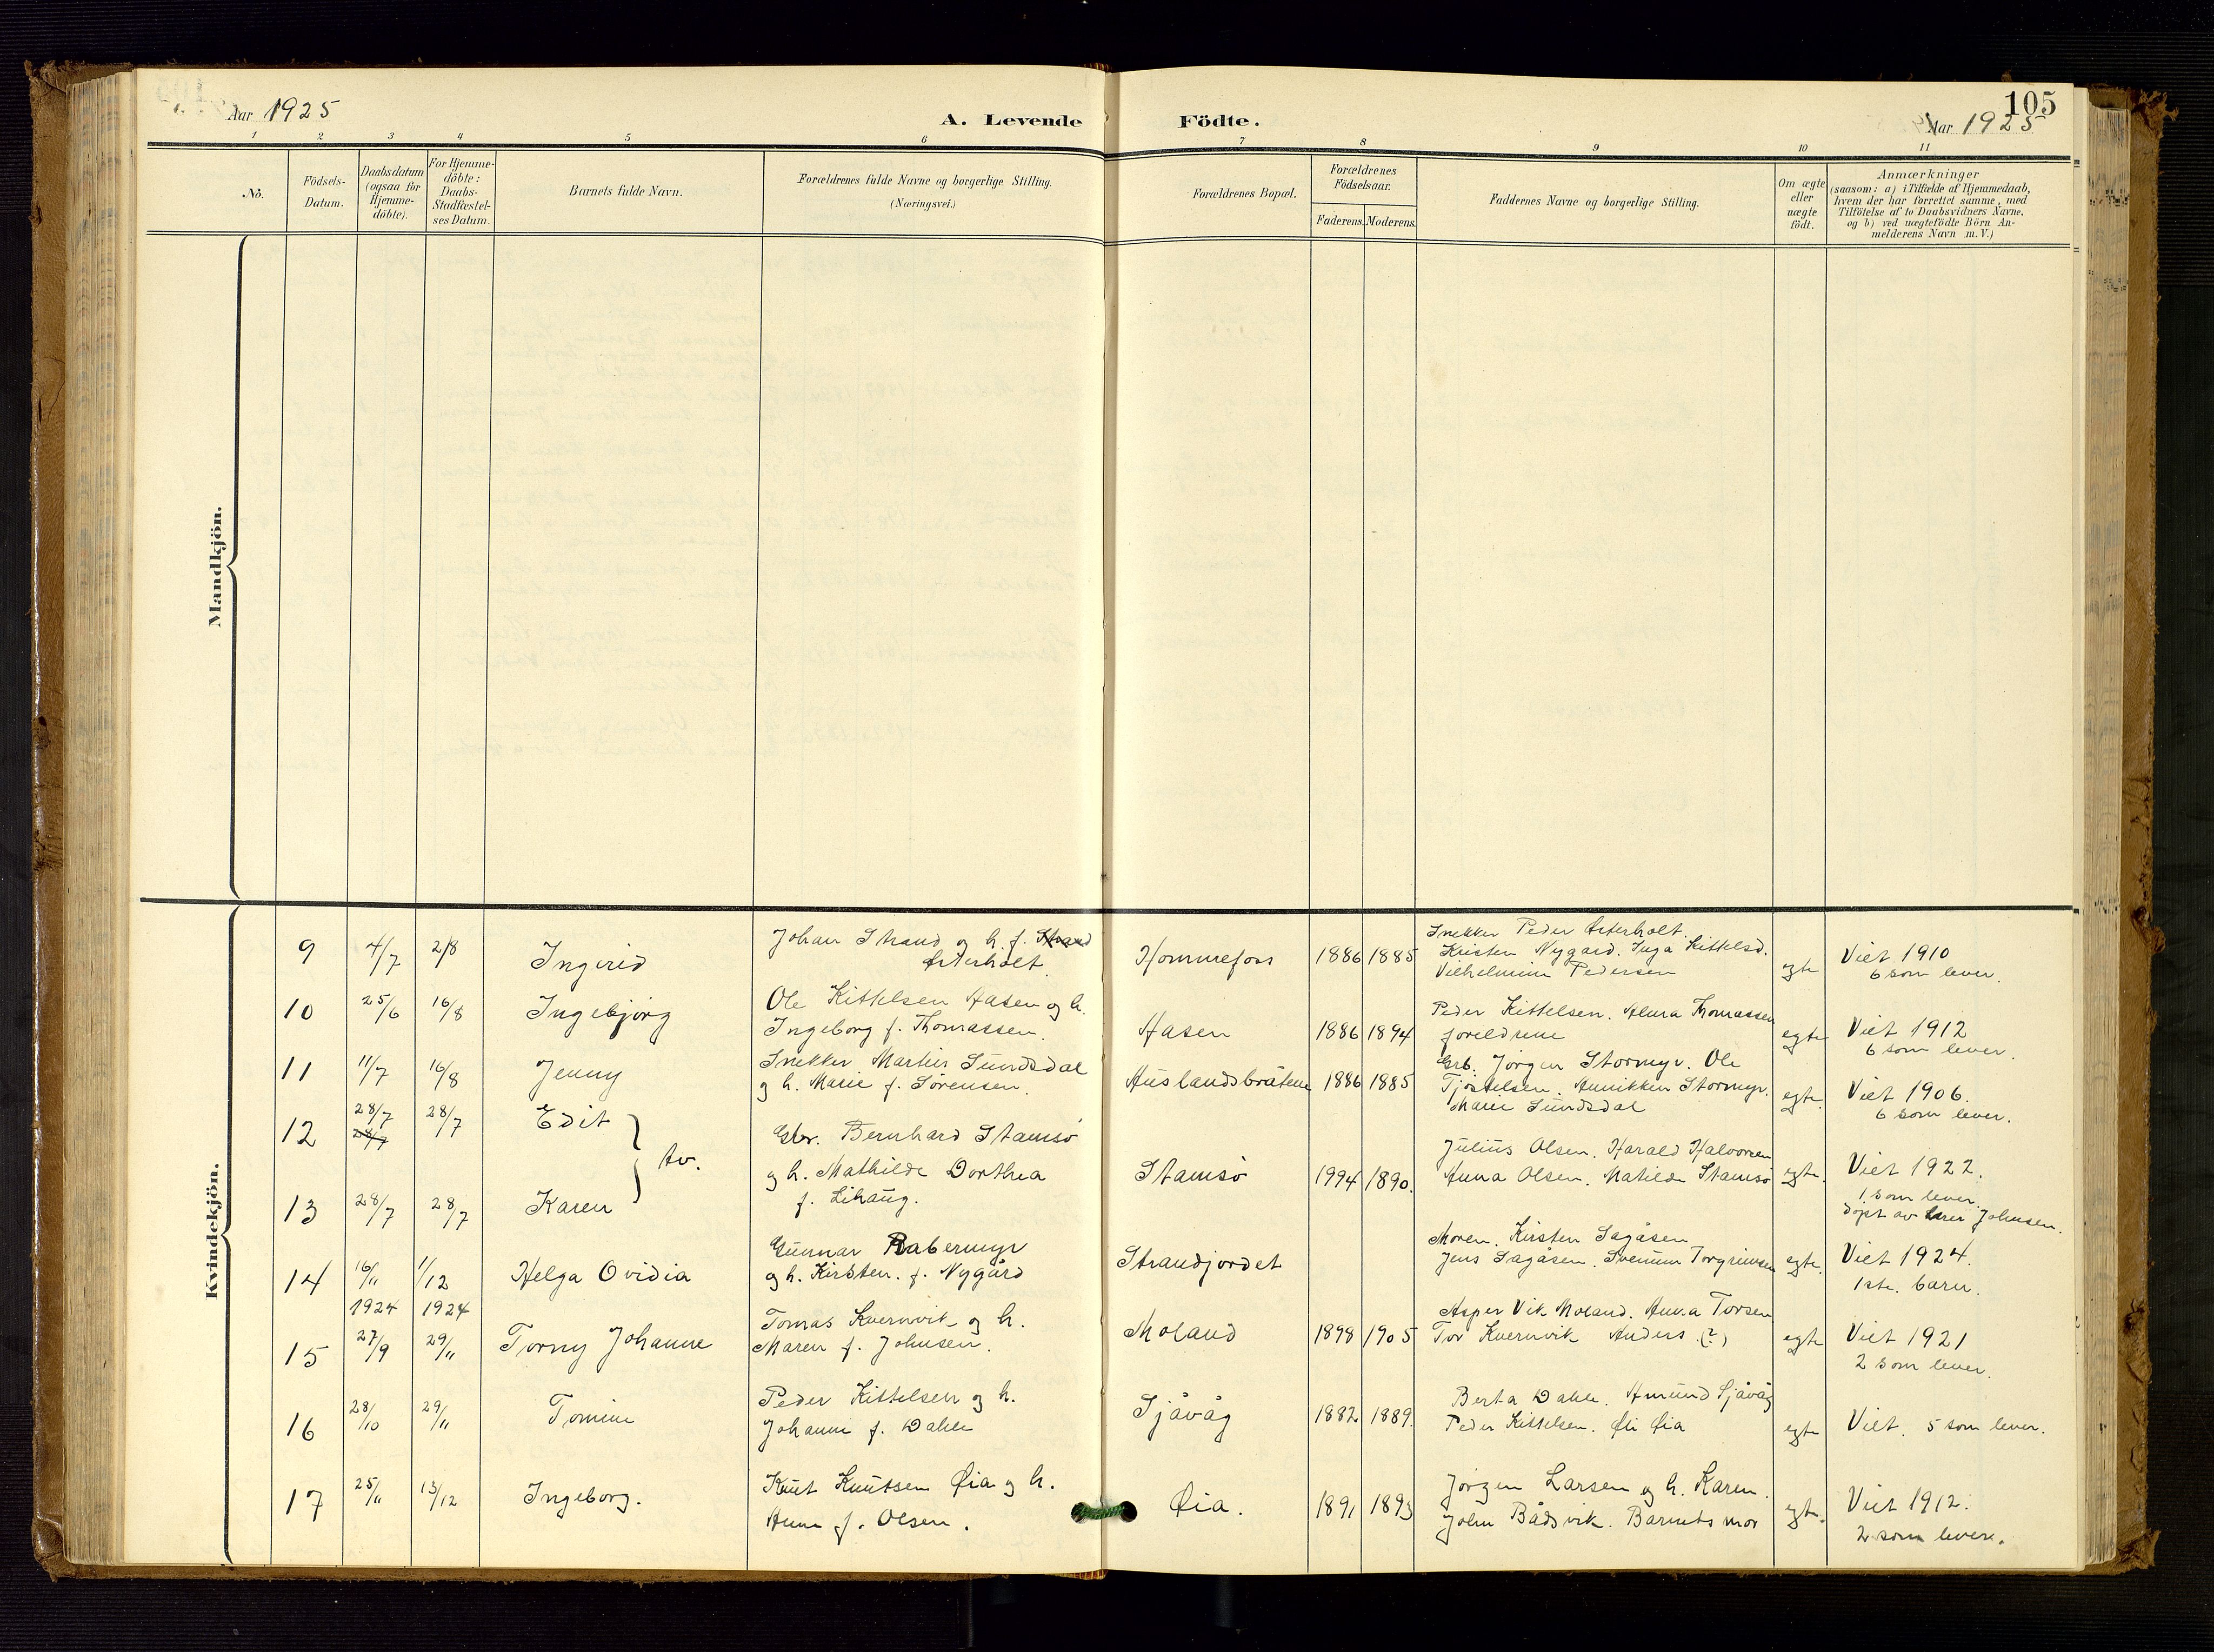 Aar 1925
A. Levende Födte.
105
Aar 1925
1 2 3 4 5 6 7 8 9 10 11
No.
Födsels-
Datum.
Daabsdatum
(ogsaa for
Hjemme-
döbte).
For Hjemme-
döbte:
Daabs-
Stadfæstel-
ses Datum.
Barnets fulde Navn.
Forældrenes fulde Navne og borgerlige Stilling.
(Næringsvei.)
Forældrenes Bopæl.
Forældrenes
Födselsaar.
Faderens. Moderens.
Faddernes Navne og borgerlige Stilling.
Om ægte
eller
uægte
födt.
Anmærkninger
(saasom: a) i Tilfælde af Hjemmedaab,
hvem der har forrettet samme, med
Tilföielse af to Daabsvidners Navne,
og b) ved uægtefödte Börn An-
melderens Navn m. V.)
Mandkjön.
Kvindekjön.
9 4/7 2/8 Ingirid
Johan Strand og h. f. Strand
Østerholt.
Hommefoss 1886 1885
Snekker Peder Østerholt.
Kirsten Nygard. Inga Kittelsd.
Vilhelmine Pedersen
egte
Viet 1910
6 som lever.
10 25/6 16/8 Ingebjørg
Ole Kittelsen Aasen og h.
Ingeborg f. Thomassen.
Aasen 1886 1894
Peder Kittelsen. Alma Thomassen
foreldrene
egte
Viet 1912
6 som lever.
11 11/7 16/8 Jenny
Snekker Martin Sundsdal
og h. Marie f. Sørensen.
Auslandsbråtene 1886 1885
Grb. Jørgen Stormyr. Ole
Tjøstelsen. Annikken Stormyr.
Marie Sundsdal
egte.
Viet 1906.
6 som lever.
12 28/7 28/7 28/7 Edit
tv.
Gbr. Bernhard Stamsø
og h. Mathilde Dorthea
f. Lihaug.
Stamsø 1994 1890.
Julius Olsen. Harald Halvorsen
Anna Olsen. Matilde Stamsø
egte.
Viet 1922.
1 som lever.
døpt av lærer Johnsen.
13 28/7 28/7 Karen
14 16/11 1/12 Helga Ovidia
Gunnar Rabermyr
og h. Kirsten. f. Nygård
Strandjordet
Moren. Kirsten Sagåsen
Jens Sagåsen. Svenum Torgrimsen
egte.
Viet 1924.
1ste. barn.
1924 1924
15 27/9 29/11 Torny Johanne
Tomas Kvernvik og h.
Maren f. Johnsen.
Moland 1898 1905
Asper Vik Moland. Anna Torsen
Tor Kvernvik Anders (?)
egte
Viet 1921
2 som lever.
16 28/10 29/11 Tomine
Peder Kittelsen og h.
Johanne f. Dahle
Sjåvåg 1882 1889.
Berta Dahle. Amund Sjåvåg
Peder Kittelsen. Øli Øia
egte
Viet. 5 som lever.
17 25/11 13/12 Ingeborg.
Knut Knutsen Øia og h.
Anne f. Olsen.
Øia. 1891 1893
Jørgen Larsen og h. Karen.
John Bådsvik. Barnets mor
egte.
Viet 1912.
2 som lever.